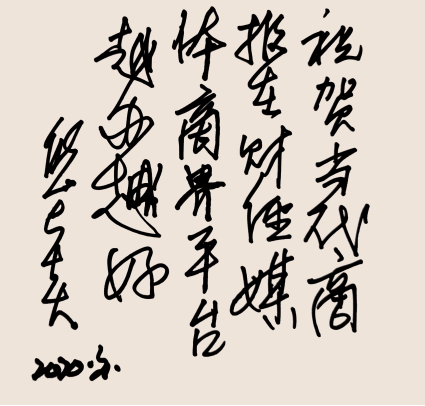 祝贺当代商
报在财经媒
体商界平台
越办越好
2020.冬.